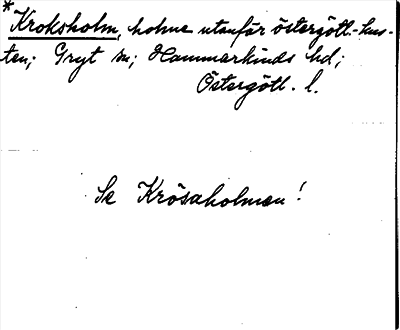 *Kroksholm, holme utanför östergötl.-kus-
ten; Gryt sn; Hammarkinds hd;
Östergötl. l.
Se Krösaholmen!